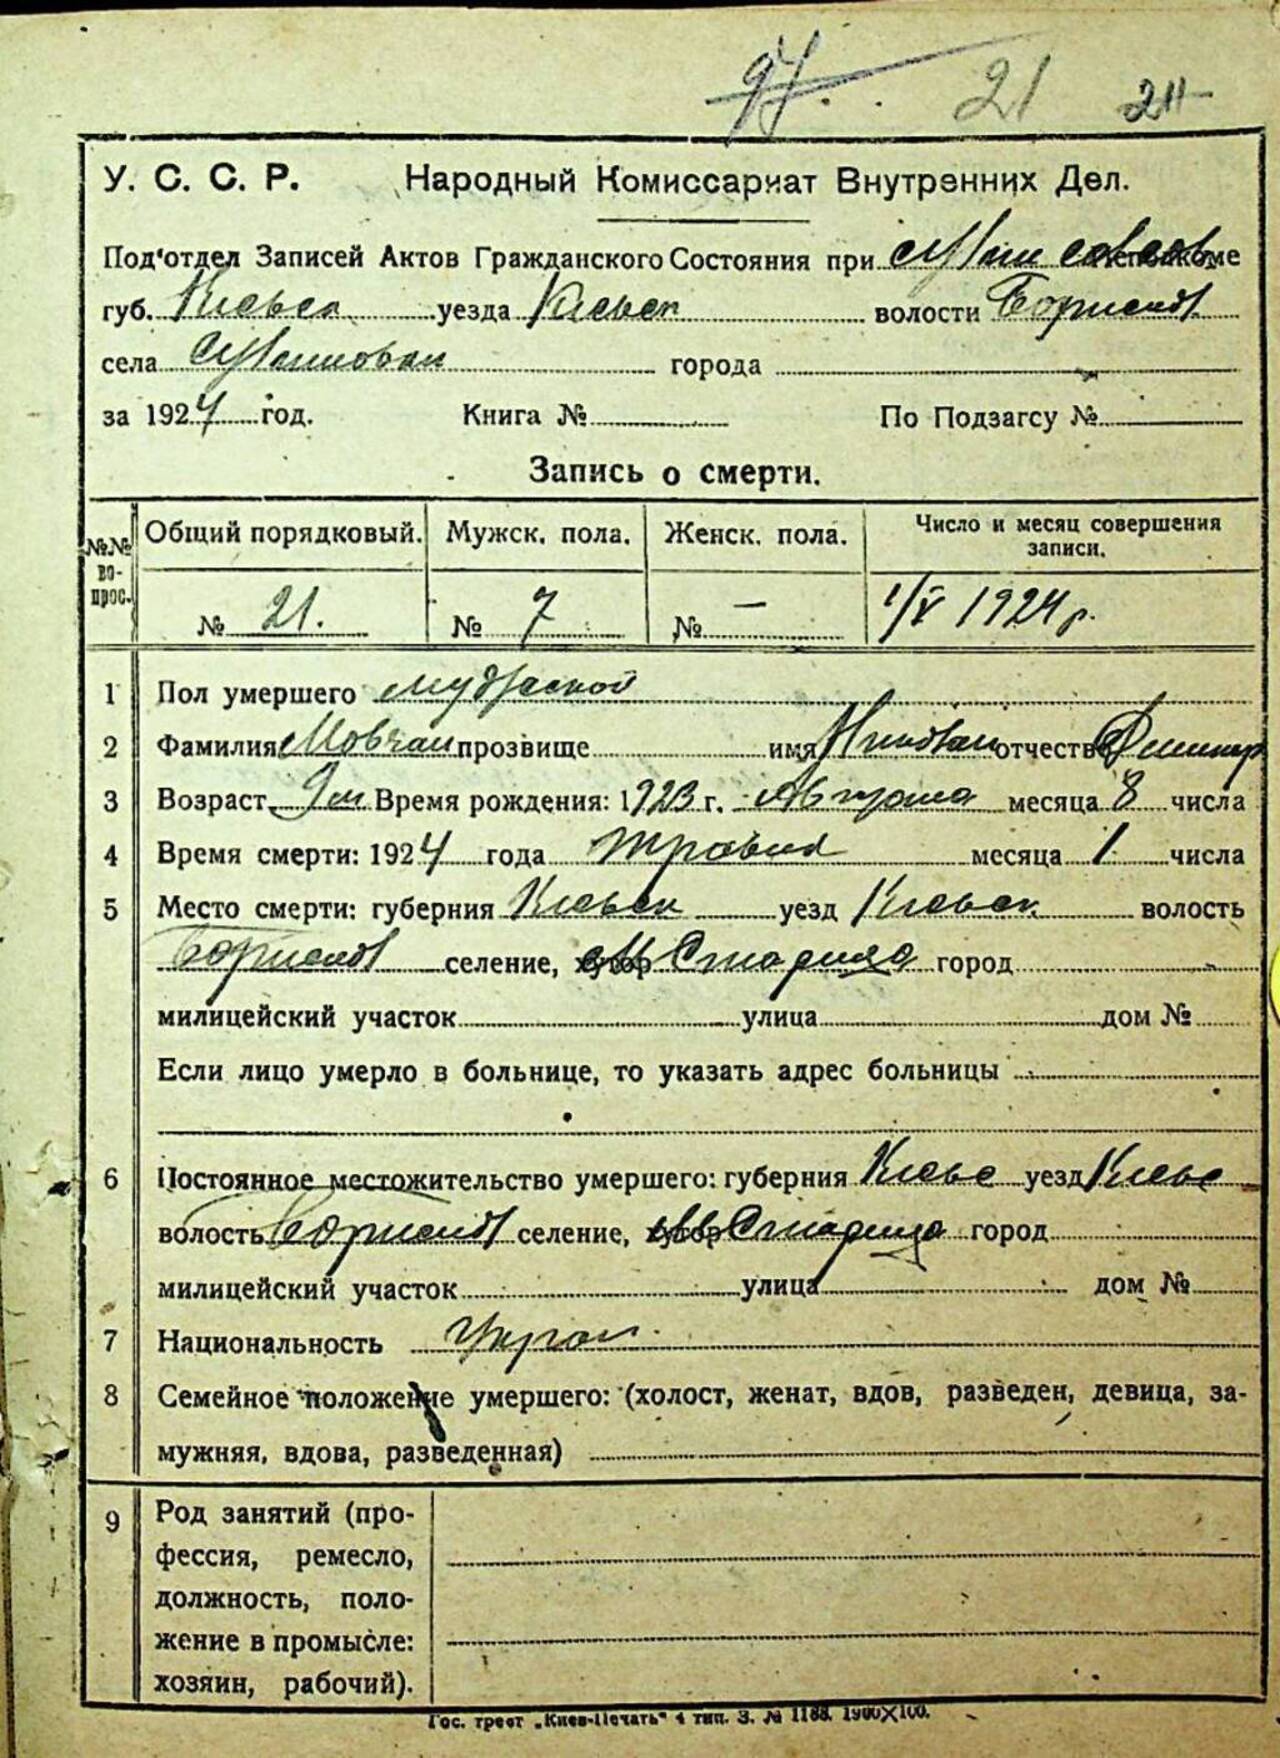 97 21 211
У. С. С. Р. Народный Комиссариат Внутренних Дел.
Под'отдел Записей Актов Гражданского Состояния при
губ. Киевск уезда Киевск волости
села города
за 1924 год. Книга № По Подзагсу №
Запись о смерти.
№№ во-прос. Общий порядковый. Мужск. пола. Женск. пола. Число и месяц совершения записи.
№ 21. № 7 № — 1/V 1924 р.
1 Пол умершего
2 Фамилия Мовчан прозвище имя отчество
3 Возраст 9 м Время рождения: 1923 г. Августа месяца 8 числа
4 Время смерти: 1924 года травня месяца 1 числа
5 Место смерти: губерния Киевск уезд Киевск волость
селение, хутор город
милицейский участок улица дом №
Если лицо умерло в больнице, то указать адрес больницы
6 Постоянное местожительство умершего: губерния Киевс уезд Киевс
волость селение, хутор город
милицейский участок улица дом №
7 Национальность Украї
8 Семейное положение умершего: (холост, женат, вдов, разведен, девица, за-
мужняя, вдова, разведенная)
9 Род занятий (про-
фессия, ремесло,
должность, поло-
жение в промысле:
хозяин, рабочий).
Гос. трест „Киев-Печать“ 4 тип. З. № 1188. 1900X100.